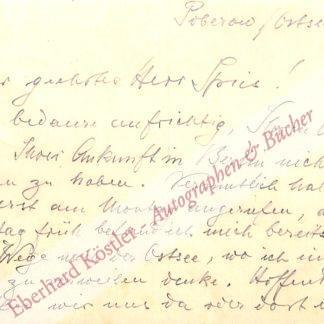 Poberow / Ostsee
geehrter Herr Spies!
bedaure aufrichtig,
Ihrer Ankunft in Berlin nich
zu haben. Vermutlich hab
erst am Montag angerufen,
tag früh befand ich mich bereits
Wege nach der Ostsee, wo ich
zu verweilen denke. Hoffent
wir uns da oder dort
Eberhard Köstler - Autographen & Bücher